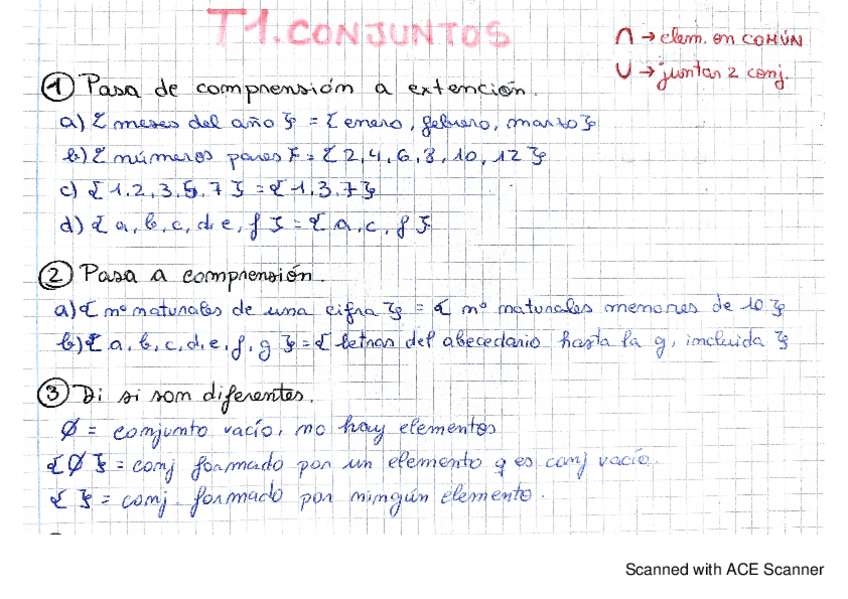 T1. CONJUNTOS
∩ → elem. en COMÚN
∪ → juntar 2 conj.
① Pasa de comprensión a extención.
a) { meses del año } = { enero, febrero, marzo }
b) { números pares } = { 2, 4, 6, 8, 10, 12 }
c) { 1, 2, 3, 5, 7 } = { 1, 3, 7 }
d) { a, b, c, d, e, f } = { a, c, f }
② Pasa a comprensión.
a) { nº naturales de una cifra } = { nº naturales menores de 10 }
b) { a, b, c, d, e, f, g } = { letras del abecedario hasta la g, incluida }
③ Di si son diferentes.
∅ = conjunto vacío, no hay elementos
{ ∅ } = conj formado por un elemento q es conj vacío.
{ } = conj. formado por ningún elemento.
Scanned with ACE Scanner